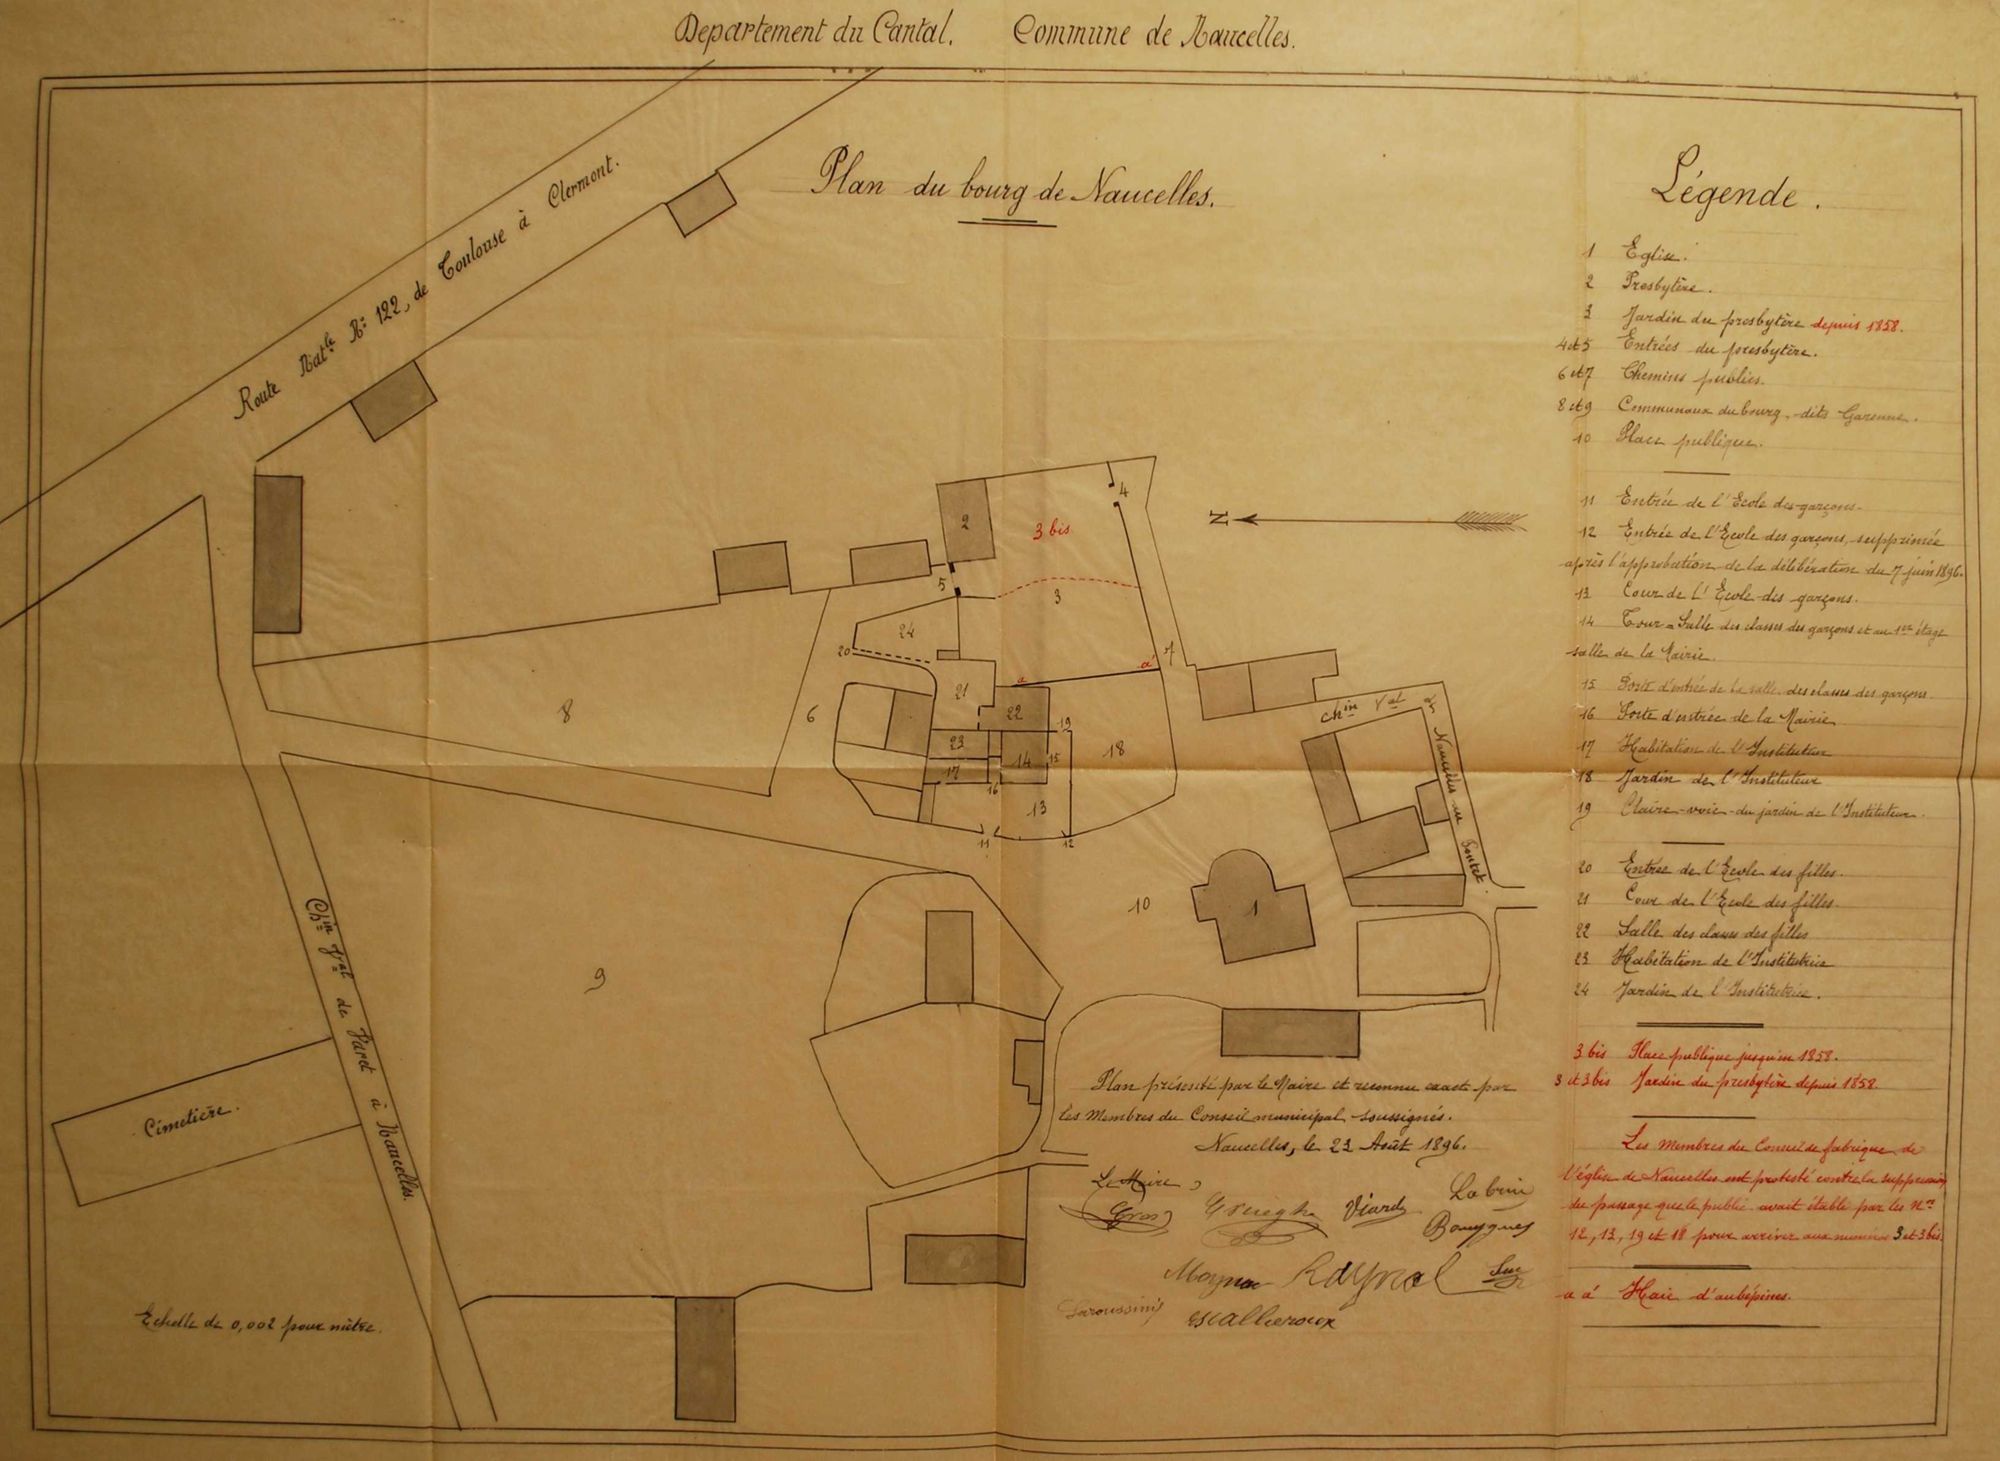 Departement du Cantal. Commune de Naucelles.
Plan du bourg de Naucelles.
Route Natle No 122, de Toulouse à Clermont.
Légende.
1 Eglise.
2 Presbytère.
3 Jardin du presbytère depuis 1858.
4 et 5 Entrées du presbytère.
6 et 7 Chemins publics.
8 et 9 Communaux du bourg, dits Garenne.
10 Place publique.
11 Entrée de l'Ecole des garçons.
12 Entrée de l'Ecole des garçons, supprimée
après l'approbation de la délibération du 7 juin 1896.
13 Cour de l'Ecole des garçons.
14 Tour = Salle des classes des garçons et au 1er étage
salle de la Mairie.
15 Porte d'entrée de la salle des classes des garçons.
16 Porte d'entrée de la Mairie
17 Habitation de l'Instituteur
18 Jardin de l'Instituteur
19 Claire-voie du jardin de l'Instituteur.
20 Entrée de l'Ecole des filles.
21 Cour de l'Ecole des filles.
22 Salle des classes des filles
23 Habitation de l'Institutrice
24 Jardin de l'Institutrice.
3 bis Place publique jusqu'en 1858.
3 et 3 bis Jardin du presbytère depuis 1858.
Les membres du Conseil de fabrique de
l'église de Naucelles ont protesté contre la suppression
du passage que le public avait établi par les Nos
12, 13, 19 et 18 pour arriver aux numéros 3 et 3 bis.
a a' Haie d'aubépines.
N
2
3 bis
4
5
3
24
20
7
a
a'
21
22
19
6
8
23
14
15
18
17
16
13
11
12
Chin Val de
Naucelles au Pontet
10
1
9
Chin Val de Varet à Naucelles.
Cimetière.
Echelle de 0,002 pour mètre.
Plan présenté par le Maire et reconnu exact par
les Membres du Conseil municipal soussignés.
Naucelles, le 23 Août 1896.
Le Maire,
Gros
Viard
Labrin
Bouygues
Raynal
Laroussinie
Escallieroux